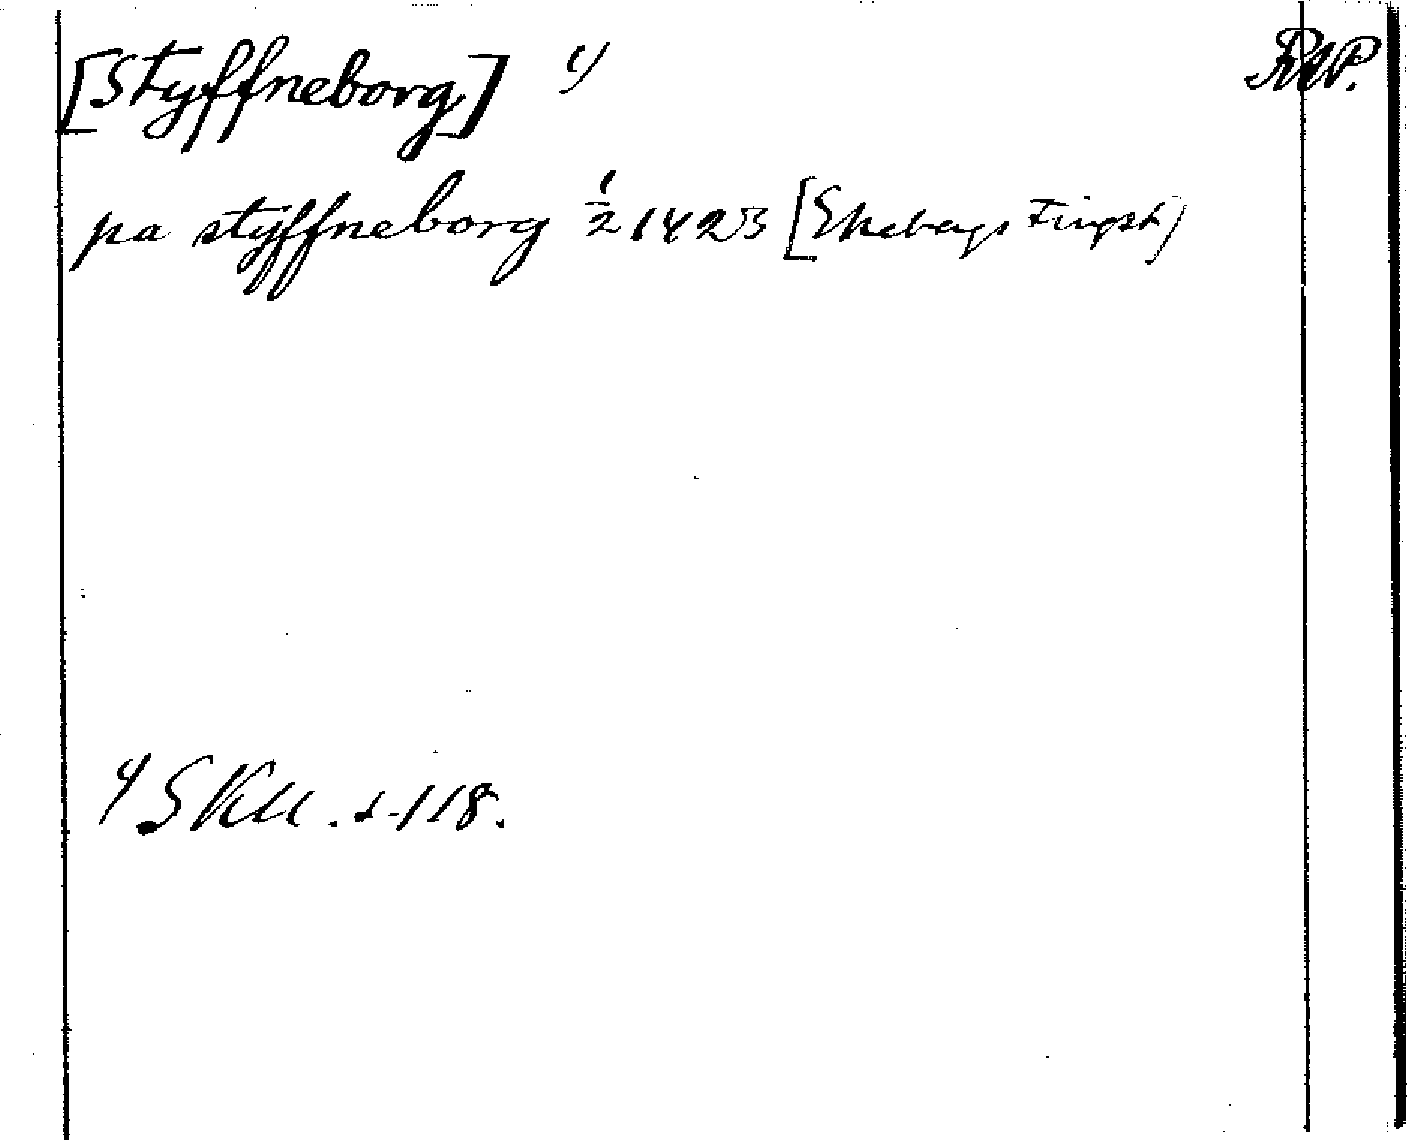 [Styffneborg] 1) RAP.
pa styffneborg 1/2 1423 [Ekebergs Tingst]
1) SRAU. 2-118.